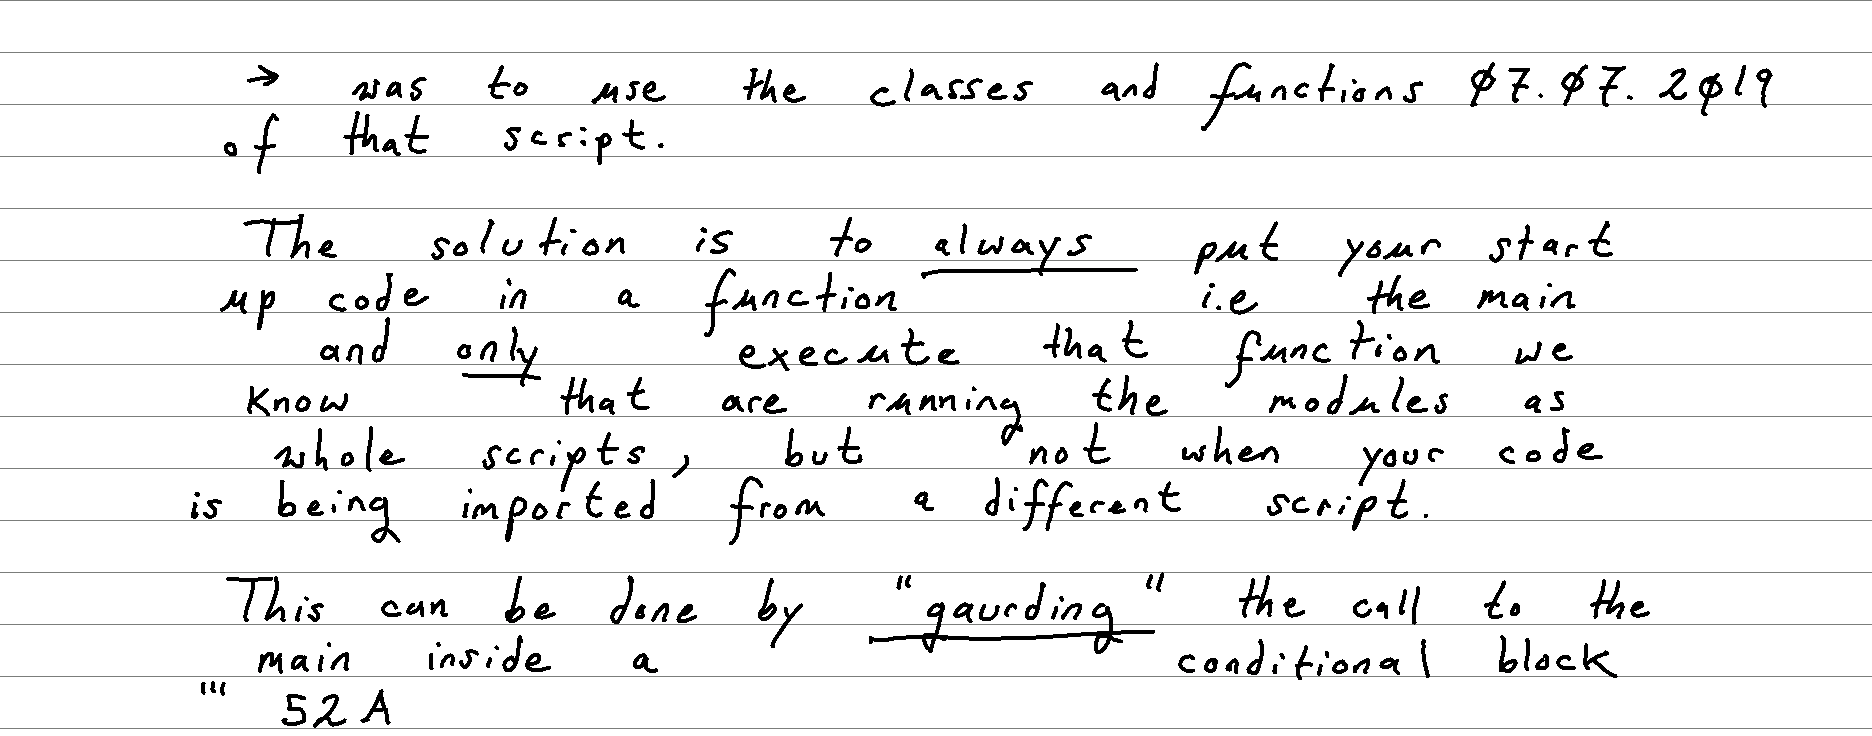 → was to use the classes and functions 07.07.2019
of that script.
The solution is to always put your start
up code in a function i.e the main
and only execute that function we
know that are running the modules as
whole scripts, but not when your code
is being imported from a different script.
This can be done by "gaurding" the call to the
main inside a conditional block
"' 52A